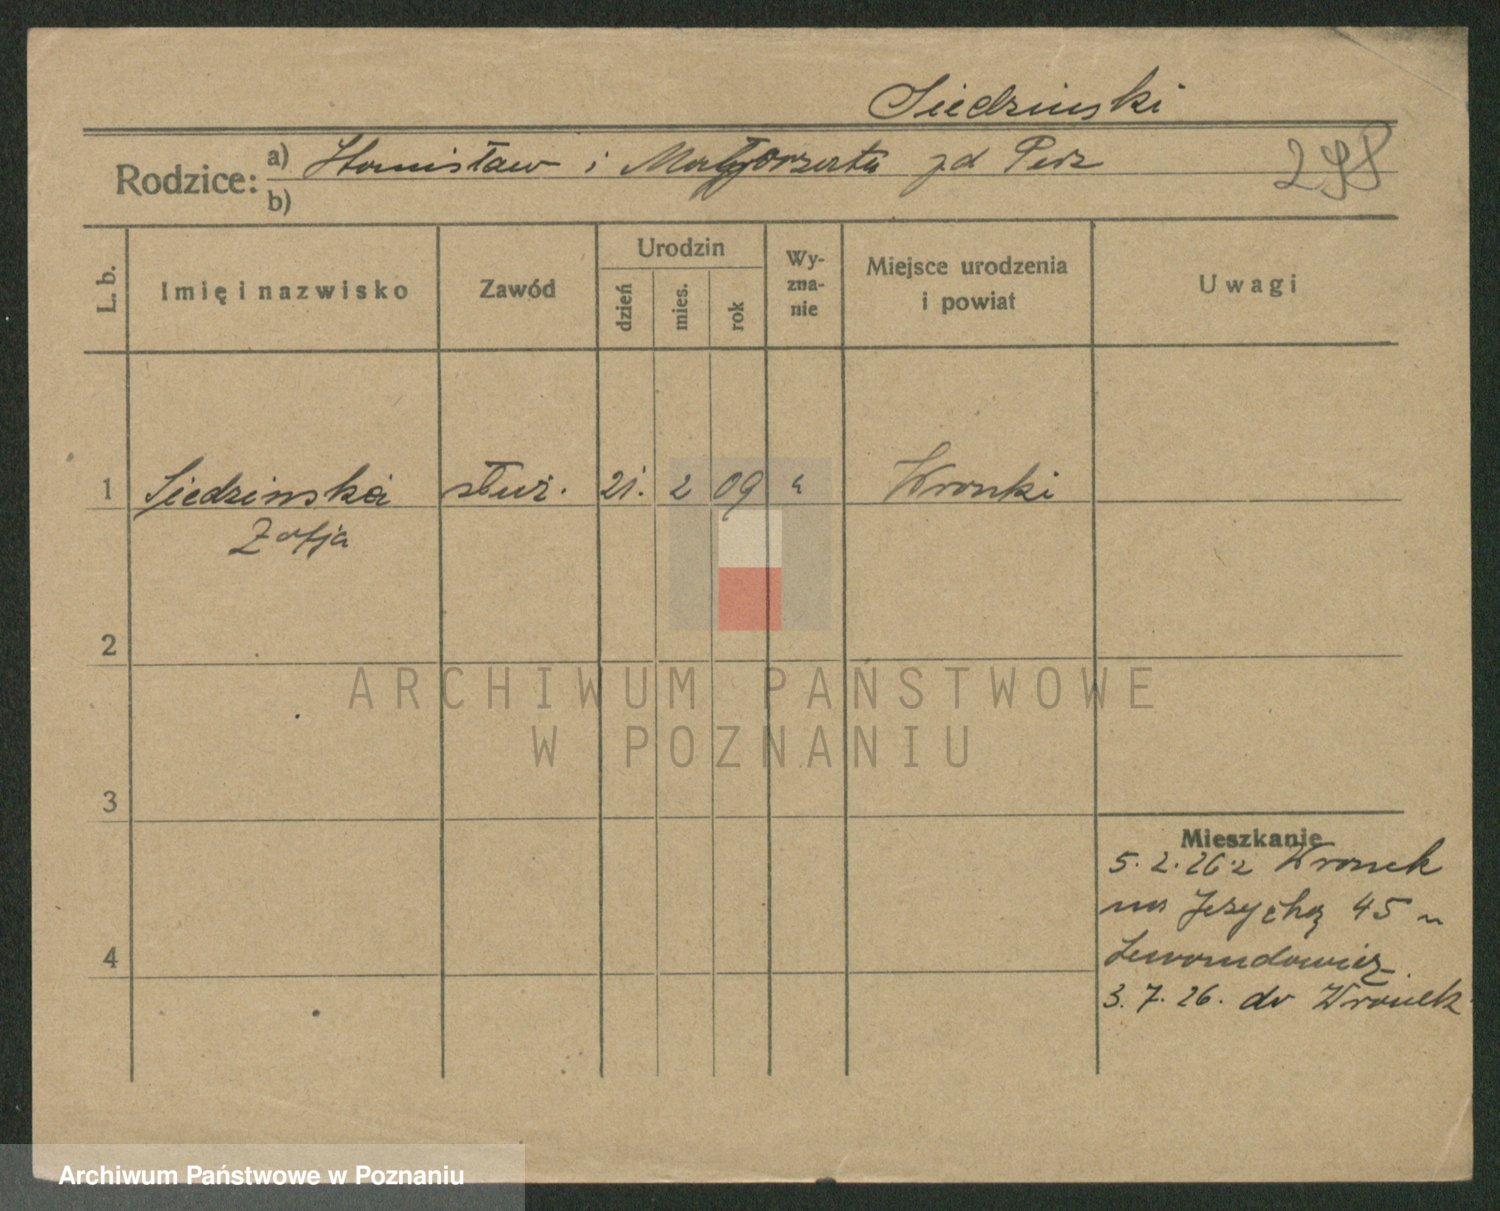 Siedzinski
Rodzice: a) Stanisław i Małgorzata zd Perz
298
b)
L. b. Imię i nazwisko Zawód Urodzin dzień mies. rok Wy-zna-nie Miejsce urodzenia i powiat Uwagi
1 Siedzinska służ. 21. 2 09 Wronki
Zofja
2
ARCHIWUM PAŃSTWOWE
W POZNANIU
3
Mieszkanie
5. 2. 26 z Wronek
na 45 u
4
Lewandowicz
3. 7. 26. do Wronek
Archiwum Państwowe w Poznaniu